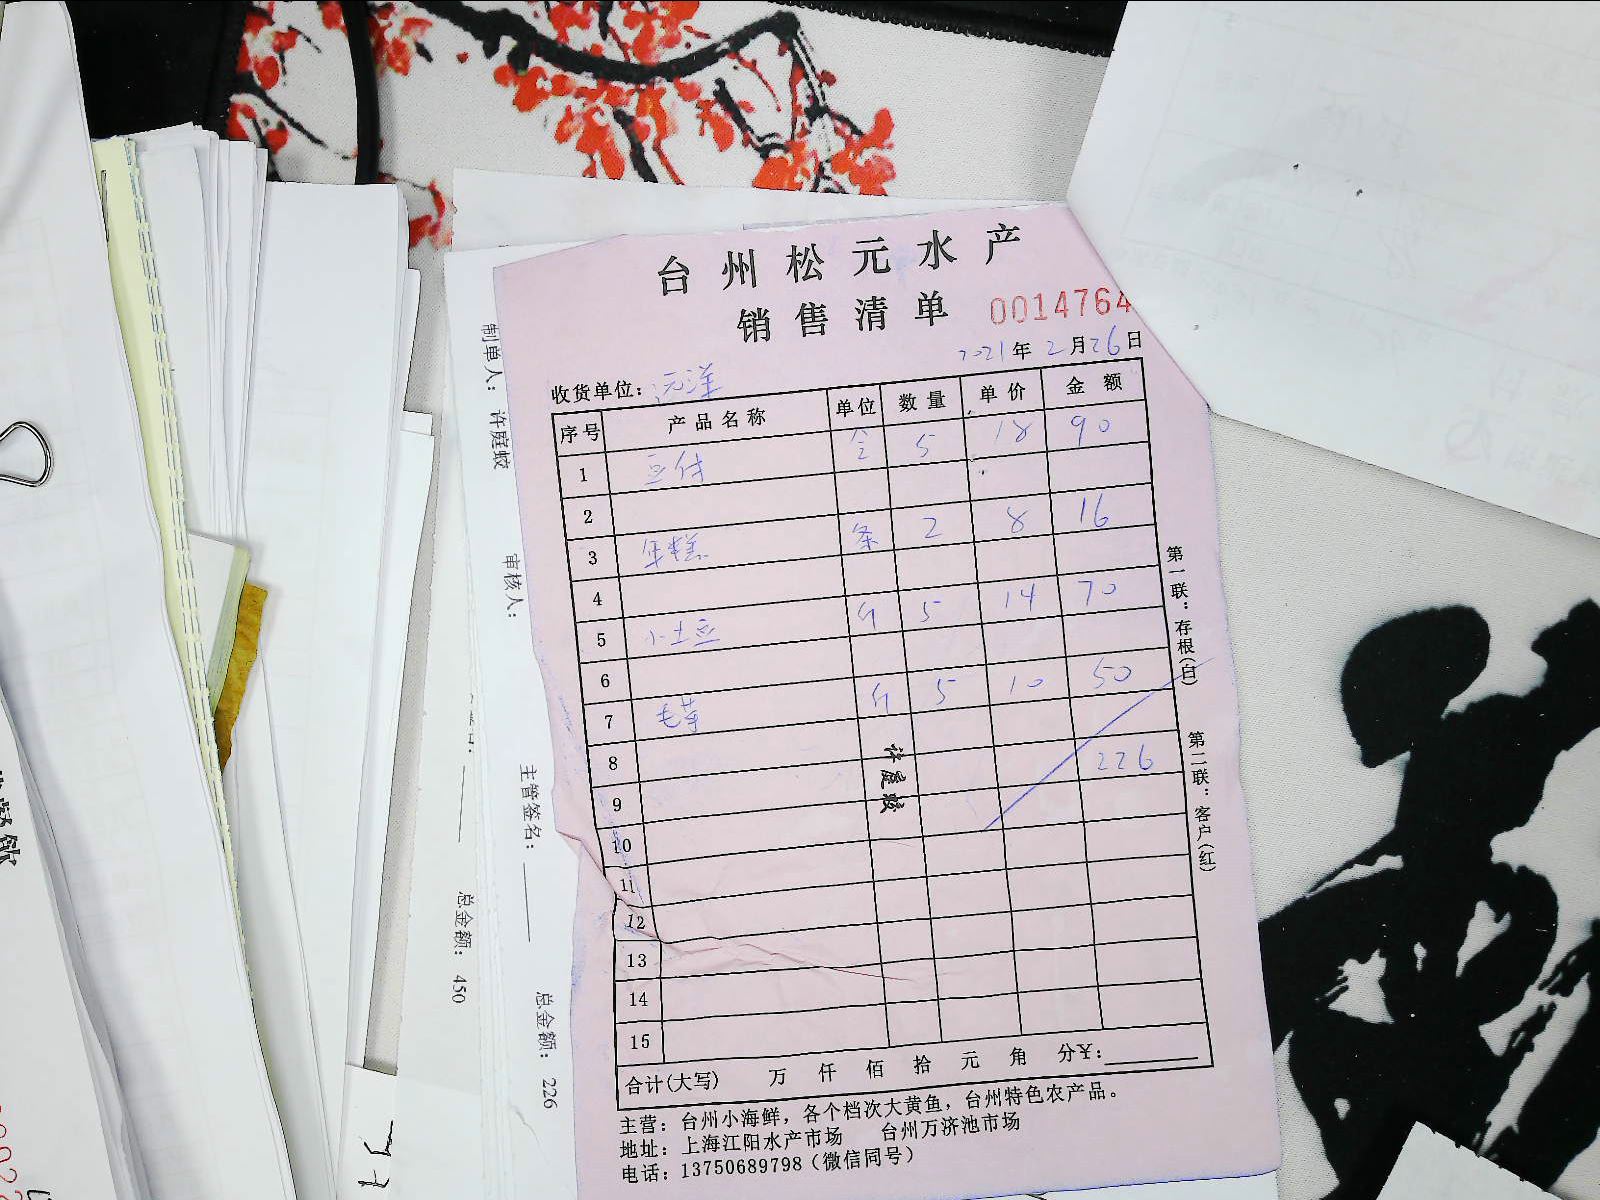 台州松元水产
销售清单 0014764
2021年2月26日
收货单位：沅洋
序号 产品名称 单位 数量 单价 金额
1 豆付 合 5 18 90
2
3 年糕 条 2 8 16
4
5 小土豆 斤 5 14 70
6
7 毛芋 斤 5 10 50
8 226
9
10
11
12
13
14
15
许庭蛟
合计(大写) 万 仟 佰 拾 元 角 分¥:
主营：台州小海鲜，各个档次大黄鱼，台州特色农产品。
地址：上海江阳水产市场 台州万济池市场
电话：13750689798（微信同号）
第一联：存根(白)
第二联：客户(红)
制单人： 许庭蛟
审核人：
主管签名：
总金额： 226
总金额： 450